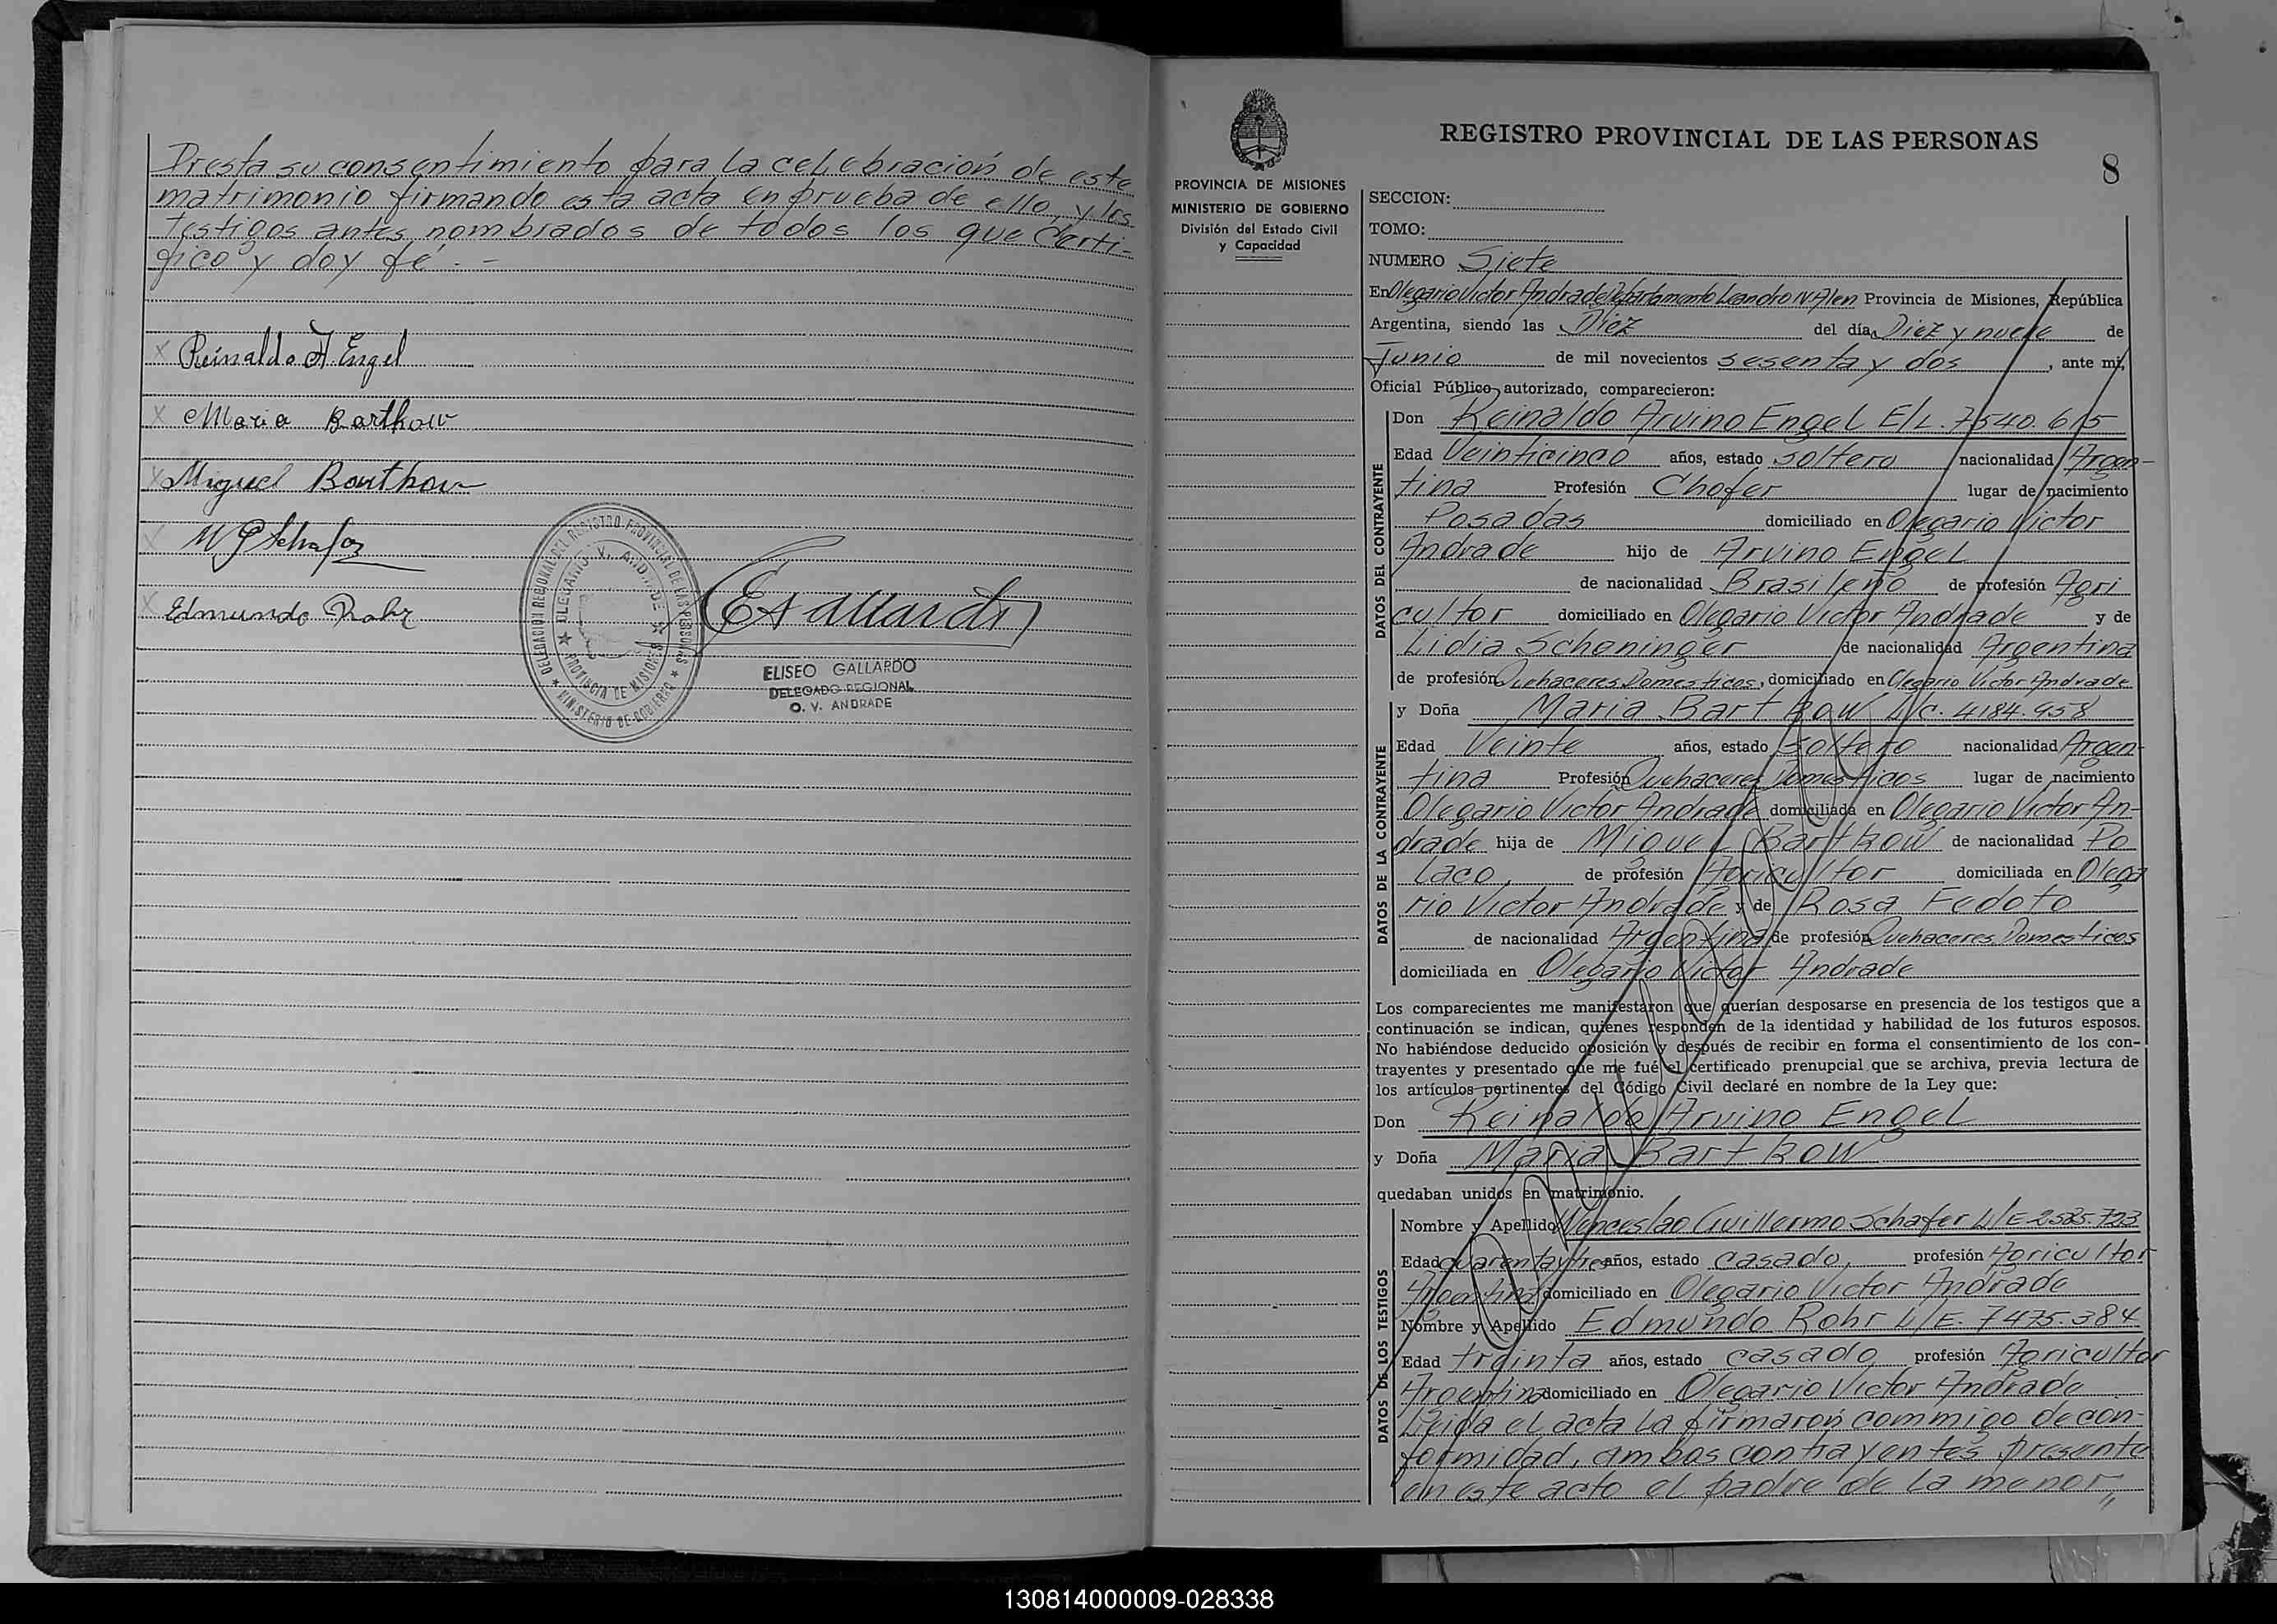 Presta su consentimiento para la celebración de este
matrimonio firmando esta acta en prueba de ello, y los
testigos antes nombrados de todos los que certi-
fico y doy fé. -
Reinaldo A. Engel
Maria Bartkow
Miguel Bartkow
W G Schafer
Edmundo Rohr
DELEGACION REGIONAL DEL REGISTRO PROVINCIAL DE LAS PERSONAS
OLEGARIO V. ANDRADE
PROVINCIA DE MISIONES
MINISTERIO DE GOBIERNO
EGallardo
ELISEO GALLARDO
DELEGADO REGIONAL
O. V. ANDRADE
PROVINCIA DE MISIONES
MINISTERIO DE GOBIERNO
División del Estado Civil
y Capacidad
REGISTRO PROVINCIAL DE LAS PERSONAS
8
SECCION:
TOMO:
NUMERO Siete
En Olegario Victor Andrade Departamento Leandro N Alen Provincia de Misiones, República
Argentina, siendo las Diez del día Diez y nueve de
Junio de mil novecientos sesenta y dos, ante mí,
Oficial Público autorizado, comparecieron:
DATOS DEL CONTRAYENTE
Don Reinaldo Arvino Engel E/L. 7540.615
Edad Veinticinco años, estado soltero nacionalidad Argen-
tina Profesión Chofer lugar de nacimiento
Posadas domiciliado en Olegario Victor
Andrade hijo de Arvino Engel
de nacionalidad Brasileño de profesión Agri
cultor domiciliado en Olegario Victor Andrade y de
Lidia Scheninger de nacionalidad Argentina
de profesión Quehaceres Domesticos, domiciliado en Olegario Victor Andrade
DATOS DE LA CONTRAYENTE
y Doña Maria Bartkow L/C. 4184.958
Edad Veinte años, estado Soltero nacionalidad Argen-
tina Profesión Quehaceres Domesticos lugar de nacimiento
Olegario Victor Andrade domiciliada en Olegario Victor An-
drade hija de Miguel Bartkow de nacionalidad Po
laco, de profesión Agricultor domiciliada en Olega
rio Victor Andrade y de Rosa Fedoto
de nacionalidad Argentina de profesión Quehaceres Domesticos
domiciliada en Olegario Victor Andrade
Los comparecientes me manifestaron que querían desposarse en presencia de los testigos que a
continuación se indican, quienes responden de la identidad y habilidad de los futuros esposos.
No habiéndose deducido oposición y después de recibir en forma el consentimiento de los con-
trayentes y presentado que me fué el certificado prenupcial que se archiva, previa lectura de
los artículos pertinentes del Código Civil declaré en nombre de la Ley que:
Don Reinaldo Arvino Engel
y Doña Maria Bartkow
quedaban unidos en matrimonio.
DATOS DE LOS TESTIGOS
Nombre y Apellido Wenceslao Guillermo Schafer L/E 2585.723
Edad quarentaytres años, estado casado, profesión Agricultor
Argentino domiciliado en Olegario Victor Andrade
Nombre y Apellido Edmundo Rohr L/E. 7475.384
Edad treinta años, estado casado profesión Agricultor
Argentino domiciliado en Olegario Victor Andrade
Leida el acta la firmaron commigo de con-
formidad, ambos contrayentes presente
en este acto el padre de la menor,,
130814000009-028338